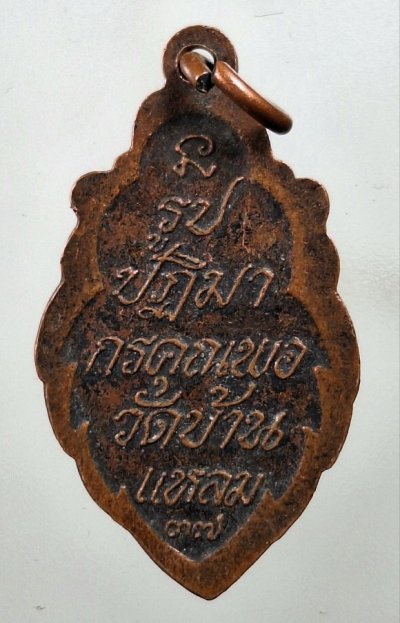 รูป
ปฏิมา
กรคุณพ่อ
วัดบ้าน
แหลม
๓๗